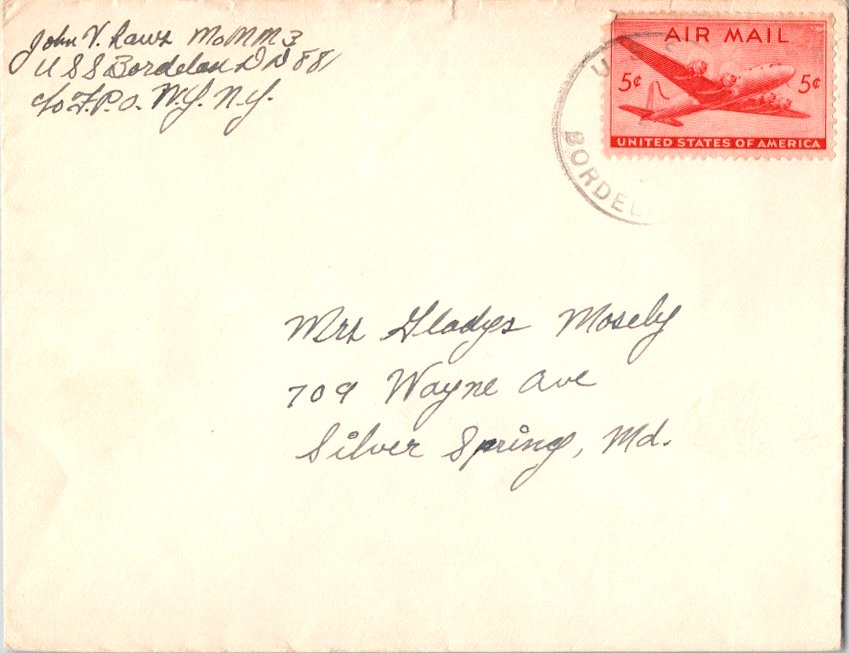 John V. Laws MoMM3
U S S Bordelon DD 881
c/o F.P.O. N.Y. N.Y.
AIR MAIL
5¢ 5¢
UNITED STATES OF AMERICA
U.S.S.
BORDEL
Mrs Gladys Mosely
709 Wayne Ave
Silver Spring, Md.